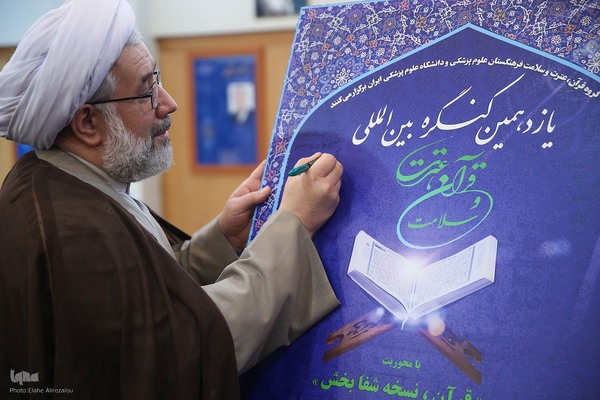 گروه قرآن، عترت و سلامت فرهنگستان علوم پزشکی و دانشگاه علوم پزشکی ایران برگزار می کنند
یازدهمین کنگره بین المللی
قرآن، عترت
و سلامت
با محوریت
قرآن، نسخه شفا بخش »
ایکنا
Photo:Elahe Alirezalou